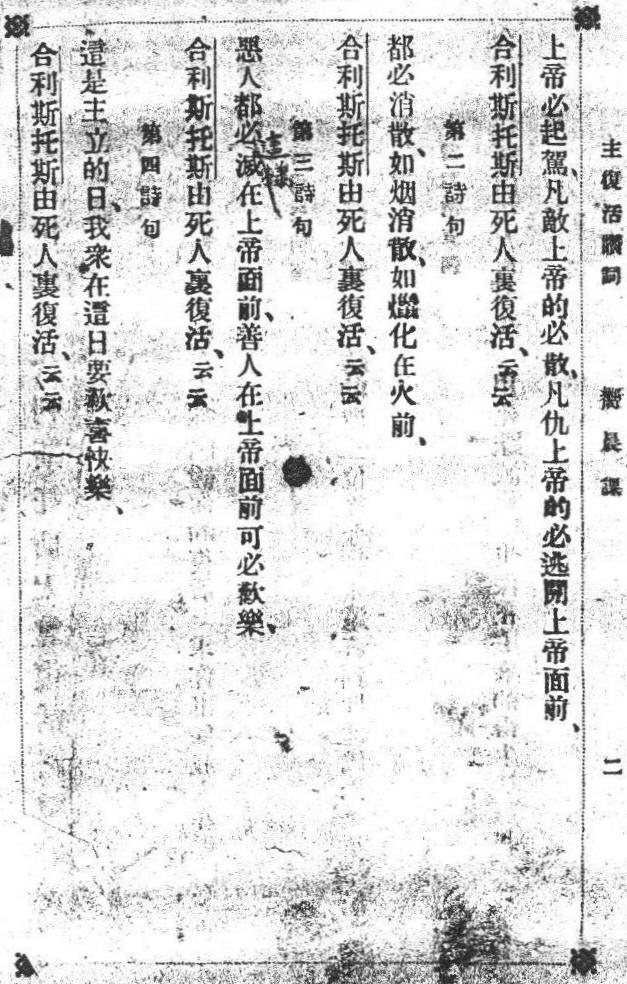 主復活讚詞 嚮晨課 二
上帝必起駕、凡敵上帝的必散、凡仇上帝的必逃開上帝面前、
合利斯托斯由死人裏復活、云云
第二詩句
都必消散、如烟消散、如蠟化在火前、
合利斯托斯由死人裏復活、云云
第三詩句
這樣
惡人都必滅在上帝面前、善人在上帝面前可必歡樂、
合利斯托斯由死人裏復活、云云
第四詩句
這是主立的日、我衆在這日要歡喜快樂、
合利斯托斯由死人裏復活、云云